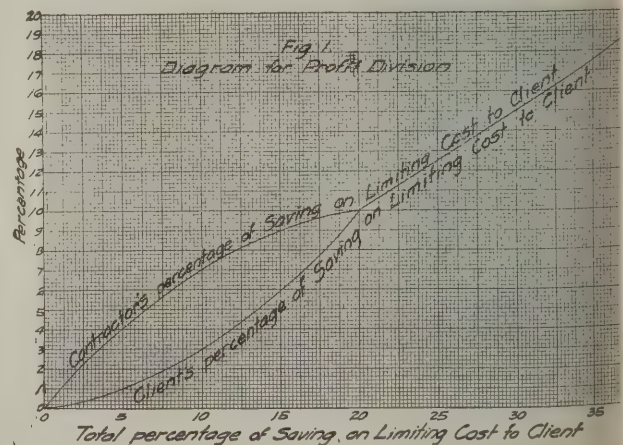 Fig. 1.
Diagram for Profit Division
Percentage
20
19
18
17
16
15
14
13
12
11
10
9
8
7
6
5
4
3
2
1
0
Contractor's percentage of Saving on Limiting Cost to Client
Client's percentage of Saving on Limiting Cost to Client
0 5 10 15 20 25 30 35
Total percentage of Saving on Limiting Cost to Client